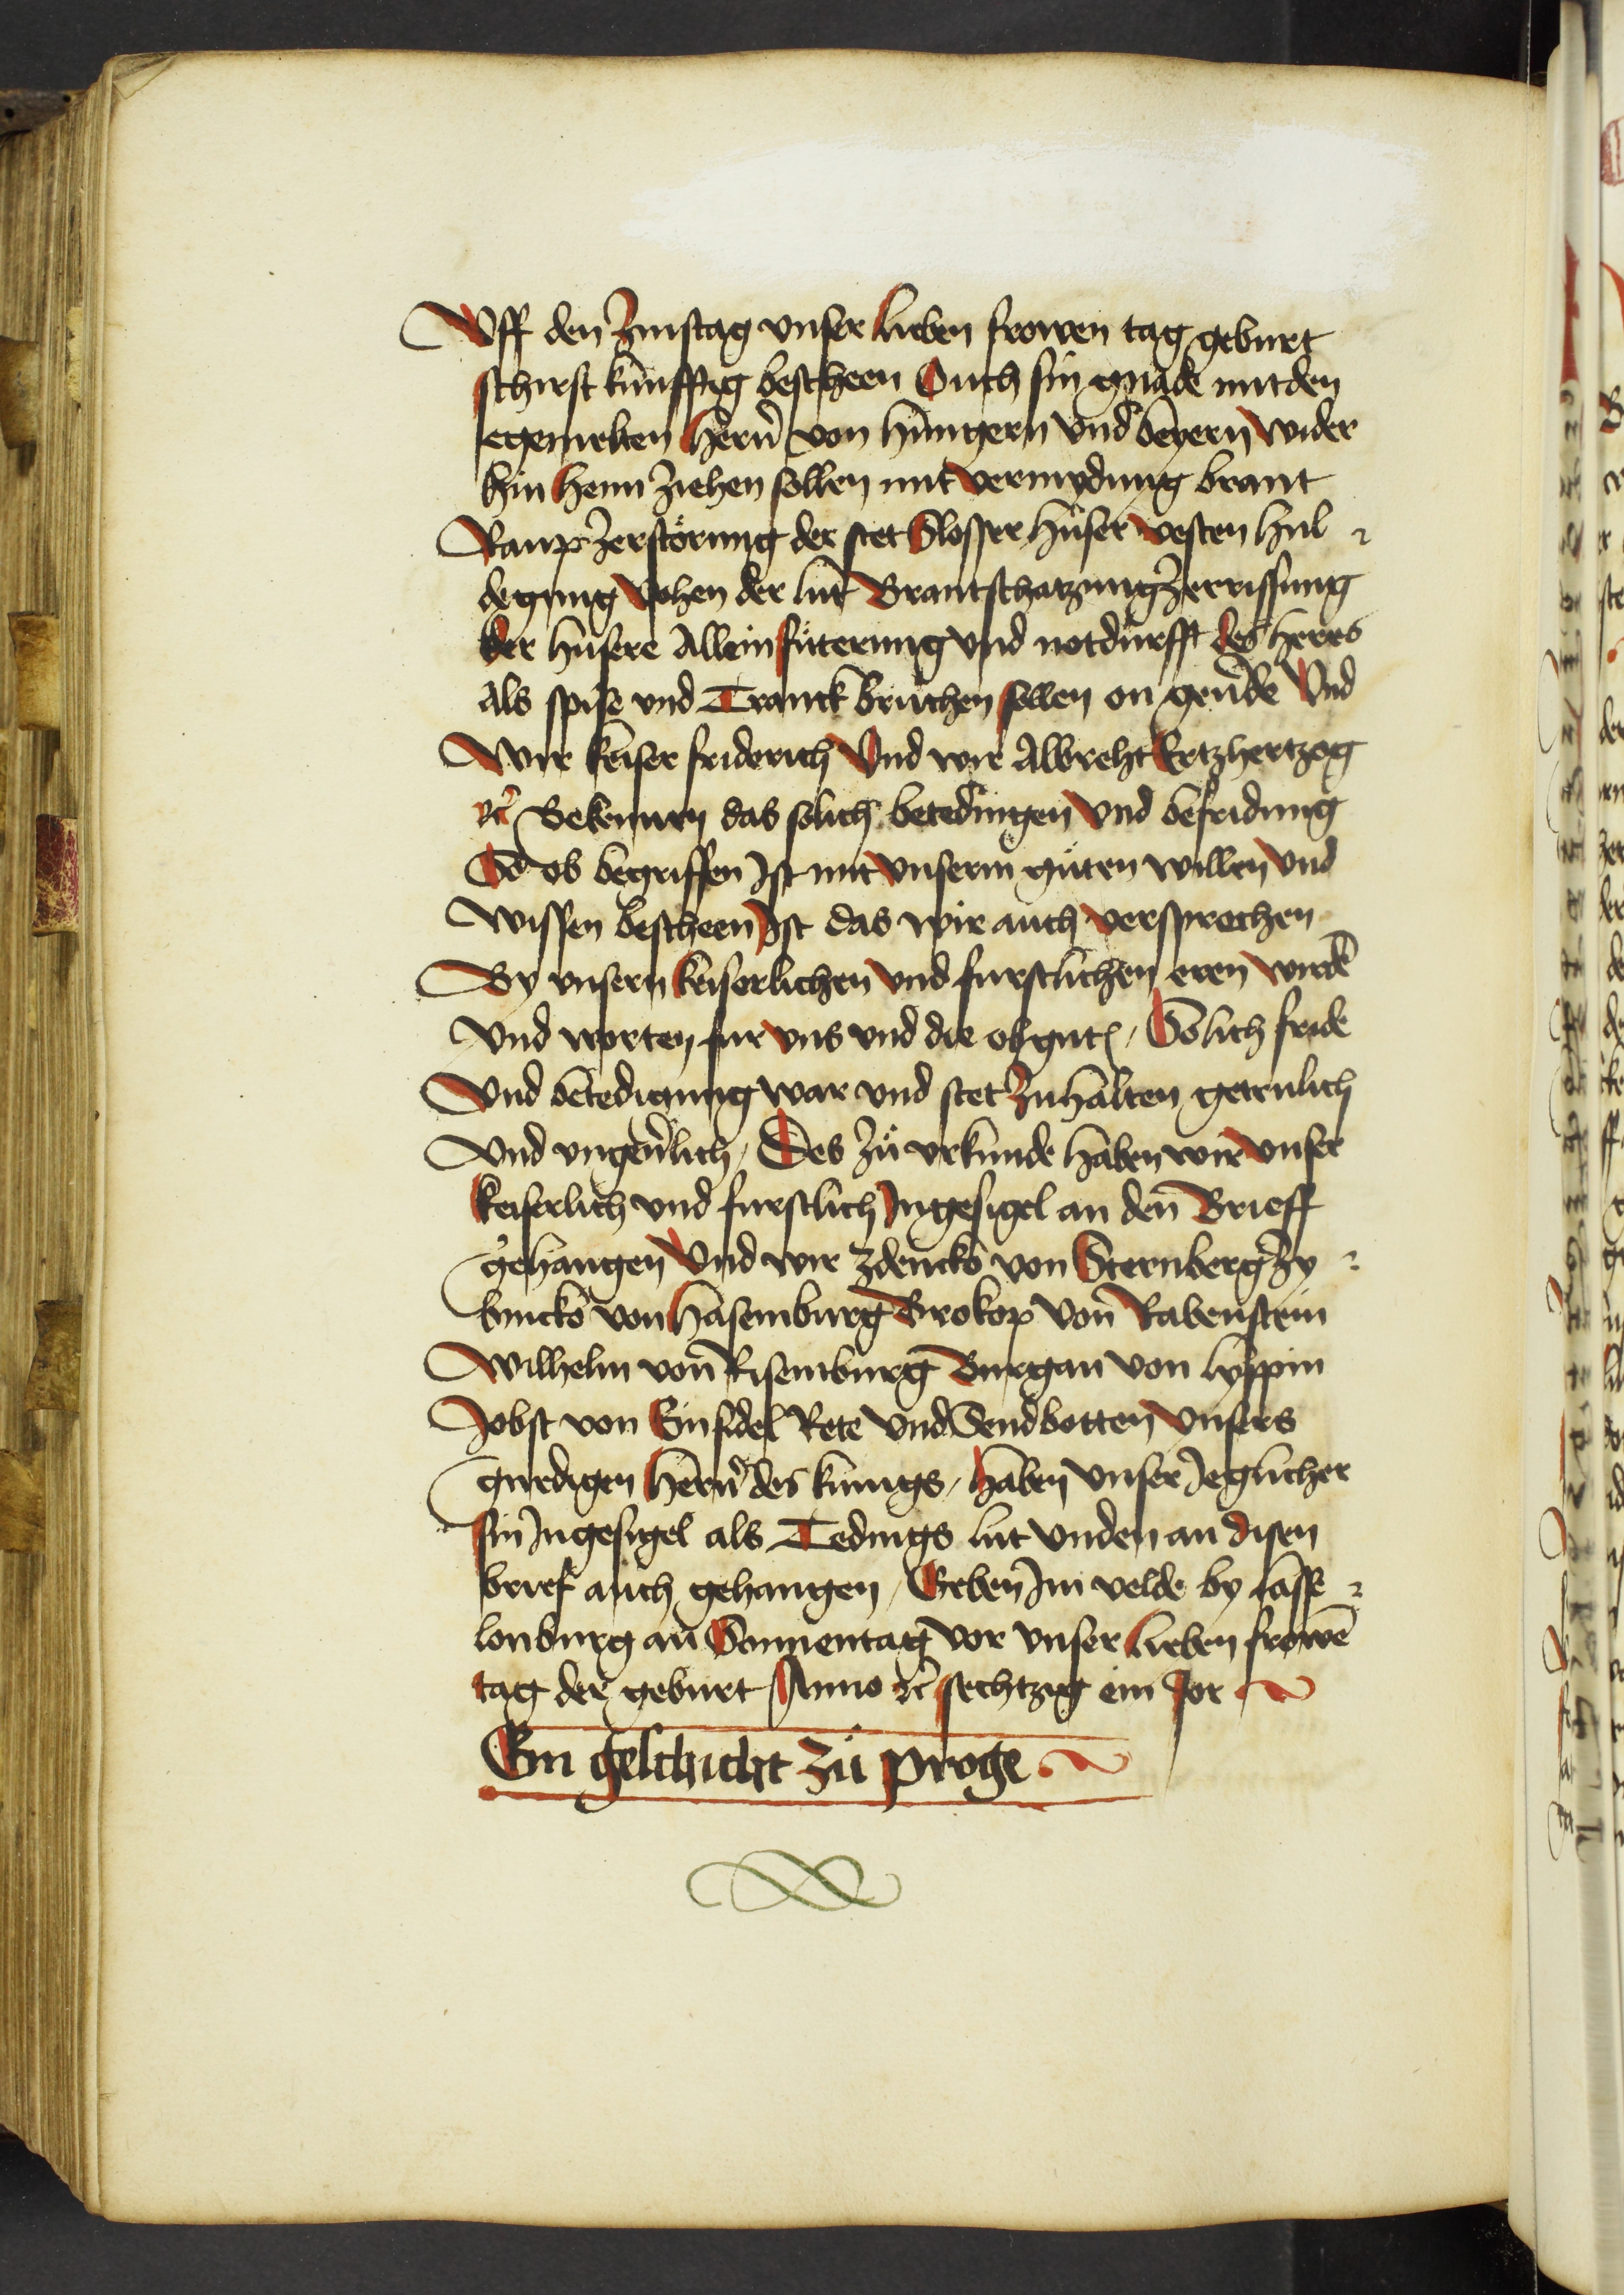 Vff den Zinstag vnser lieben frowen tag geburt
schirst kúnfftig bescheen Ouch sin gnade mit den
egemelten hern̄ von hungern vnd beyern wider
hin heim ziehen sollen mit vermydung brant
Raup zerstörung der stet Slosser húser vesten hul
degung vohen der lut Brantschatzung zerrissung
der húsere Allein fúterung vnd notdurfft des heres
als spise vnd Tranck bruchen sollen on geu̍de Vnd
Wir keiser friderich Vnd wir Albreht Ertzhertzog
ꝛc̄ Bekennen das solich betedingen Vnd befridung
So ob begriffen Ist mit vnserm gúten willen vnd
wissen bescheen Ist das wir auch versprechen
By vnsern keiserlichen vnd furstlichen eren wirdē
Vnd worten fur vns vnd die obgnt̄ / Solich fride
Vnd betedigung war vnd stet zuhalten getrulich
Vnd vngeu̍lich / Des zú vrkunde haben wir vnser
keiserlich vnd furstlich Ingesigel an den Brieff
gehangen Vnd wir zdencko von Sternberg Zy
bincko von hasemburg Brokop von Rabenstein
Wilhelm von Risemburg Burgan von lyppin
Jobst von Einsidel Rete vnd Sendbotten vnsers
gnedigen hern̄ des kunigs / haben vnser Jeglicher
sin Ingesigel als Tedings lut vnden an disen
brief auch gehangen / Geben Im velde by lasse
lonburg an Sonnentag vor vnser lieben frowē
tag der geburt Anno ꝛc̄ sechtzig ein Jor
Ein geschicht zú proge